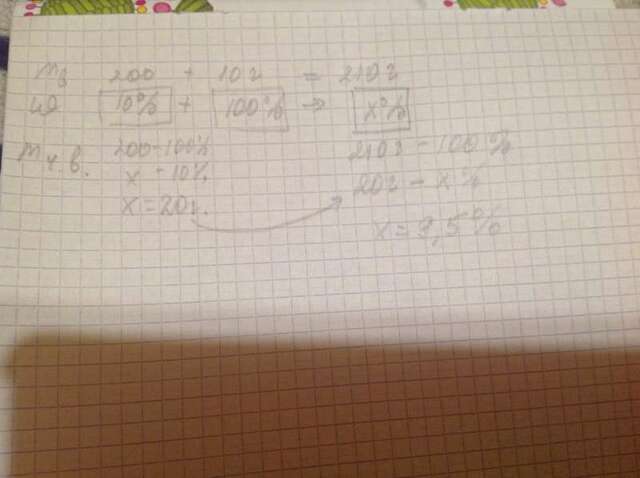 m₃ 200 + 10г = 210г
ω 10% + 100% → x%
m ч.в. 200-100% 210г - 100%
x - 10% 20г - x%
x = 20г. x = 9,5%